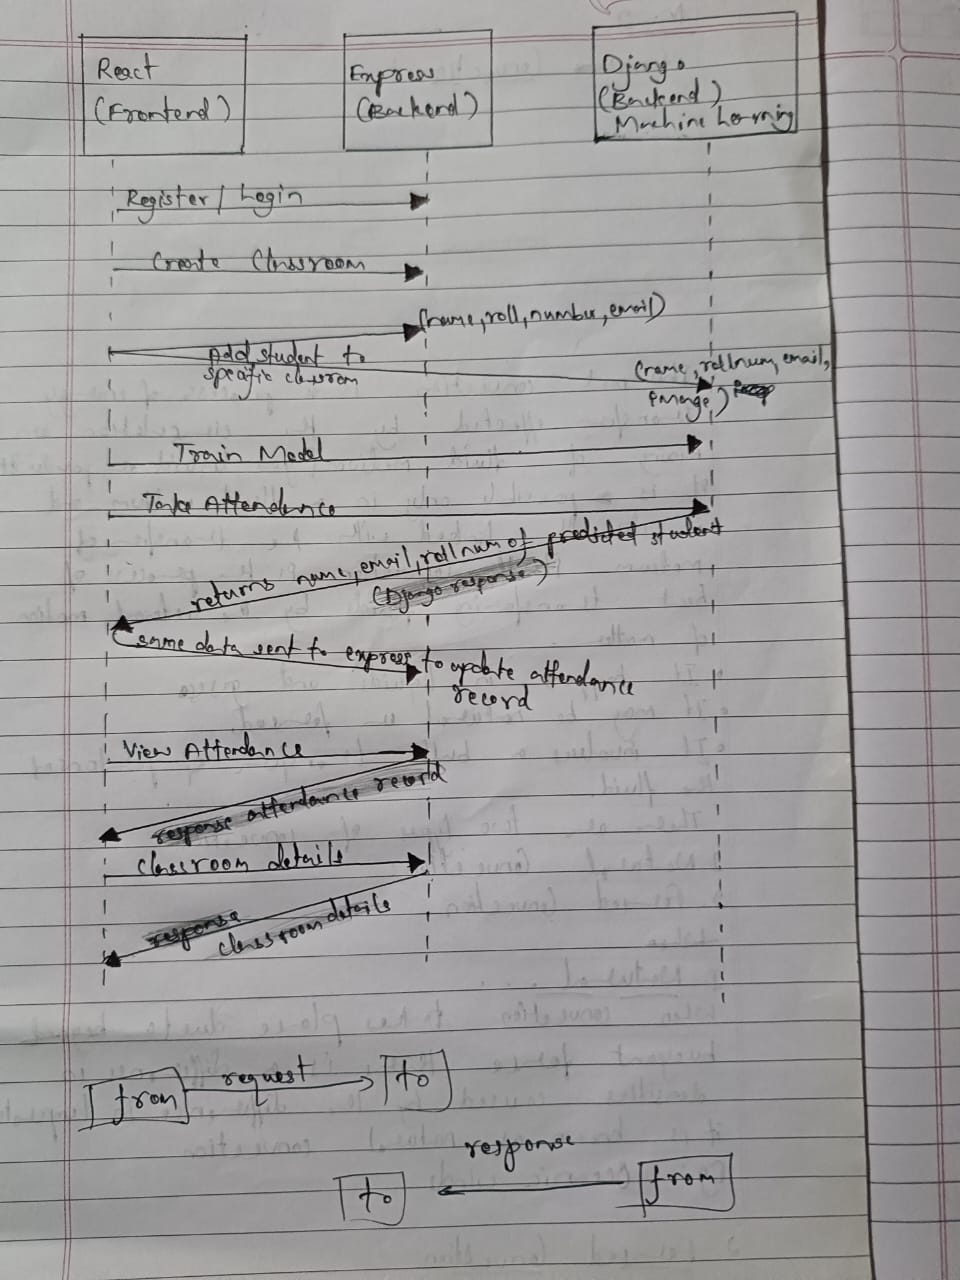 React
(Frontend)
Express
(Backend)
Django
(Backend)
Machine Learning
Register / Login
Create Classroom
(name, roll, number, email)
Add student to
specific classroom
(name, rollnum, email,
Train Model
Take Attendance
returns name, email, rollnum of predicted student
(Django response)
same data sent to express to update attendance
record
View Attendance
response attendance record
classroom details
response
classroom details
from
request
to
response
to
from